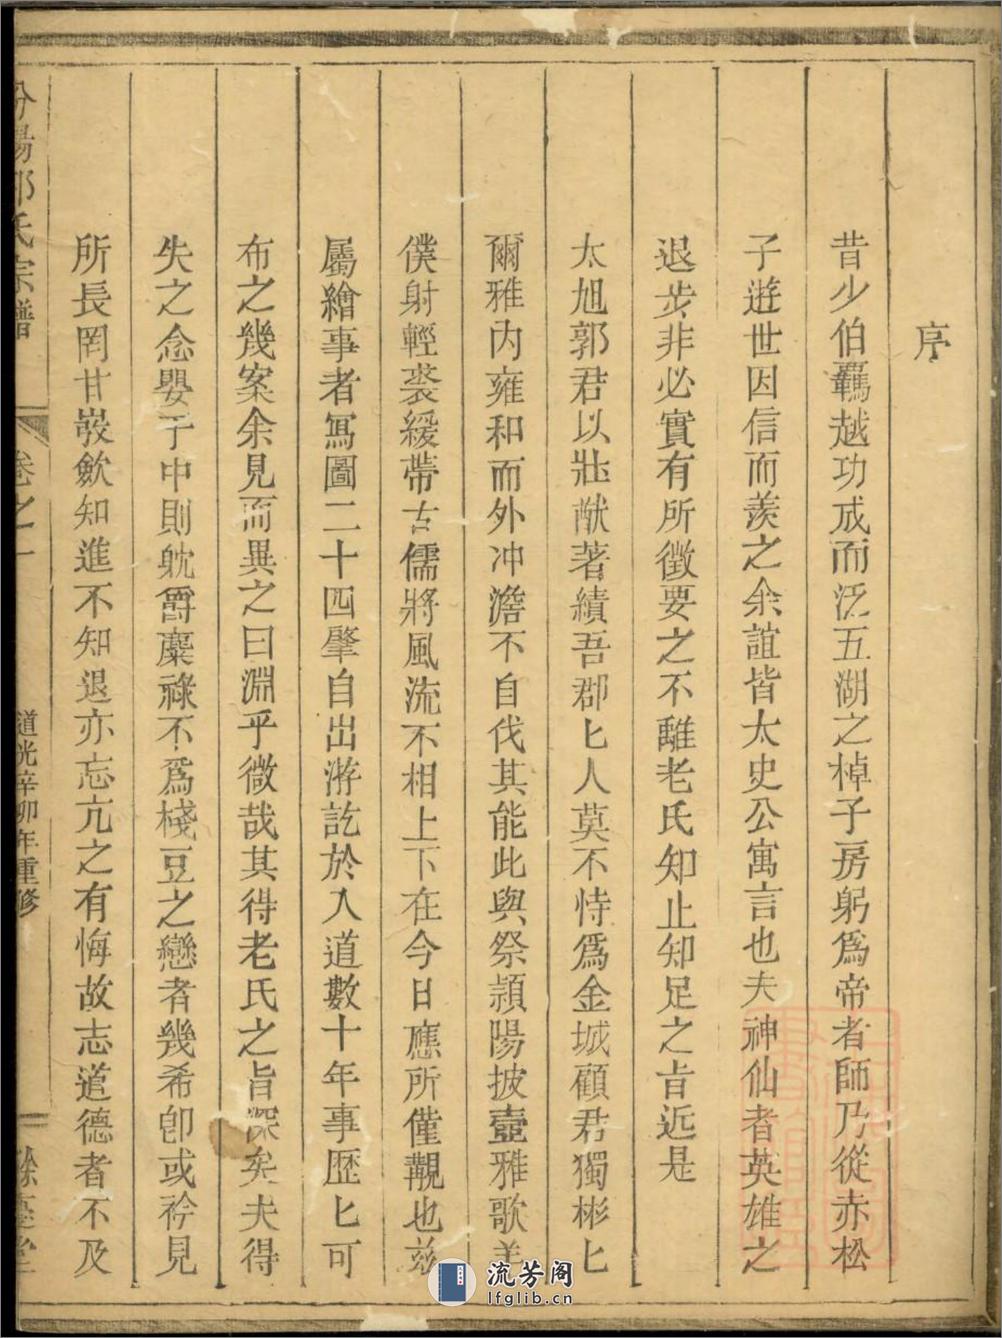 序
昔少伯羈越功成而泛五湖之棹子房躬爲帝者師乃從赤松
子遊世因信而羨之余誼皆太史公寓言也夫神仙者英雄之
退步非必實有所徵要之不離老氏知止知足之旨近是
太旭郭君以壯猷著績吾郡匕人莫不恃爲金城顧君獨彬匕
爾雅内雍和而外冲澹不自伐其能此與祭頴陽披壺雅歌羊
僕射輕裘緩帶古儒將風流不相上下在今日應所僅覯也兹
屬繪事者寫圖二十四肇自出游訖於入道數十年事歴匕可
布之幾案余見而異之曰淵乎微哉其得老氏之旨深矣夫得
失之念嬰于中則躭爵縻祿不爲棧豆之戀者幾希卽或衿見
所長罔甘嵡歛知進不知退亦忘亢之有悔故志道德者不及
汾陽郭氏宗譜
卷之一
道光辛卯年重修
餘慶堂
流芳阁
lfglib.cn